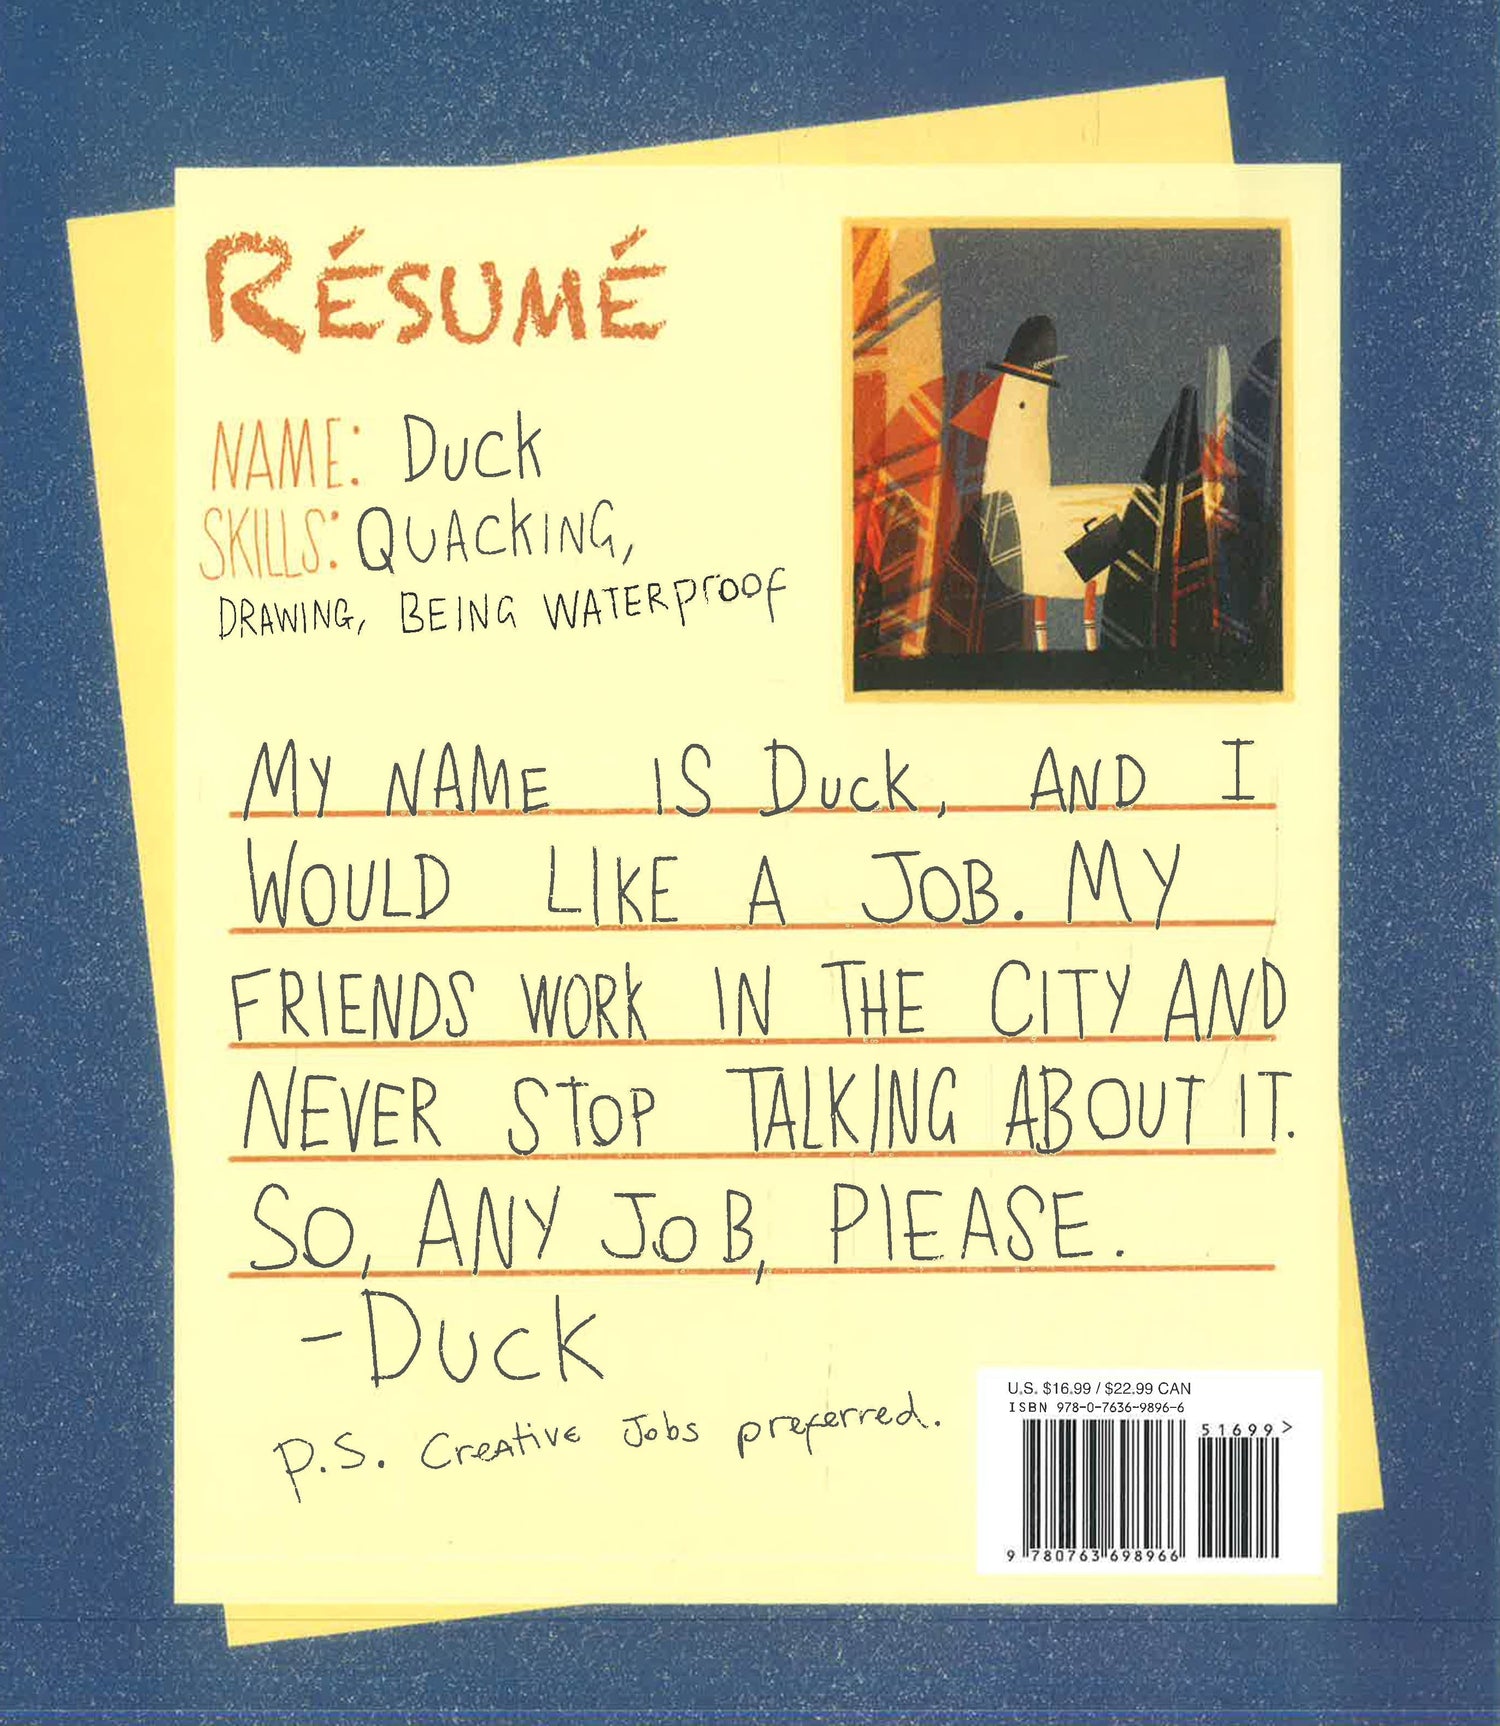 RÉSUMÉ
NAME: DUCK
SKILLS: QUACKING,
DRAWING, BEING WATERPROOF
MY NAME IS DUCK, AND I
WOULD LIKE A JOB. MY
FRIENDS WORK IN THE CITY AND
NEVER STOP TALKING ABOUT IT.
SO, ANY JOB, PLEASE.
–DUCK
P.S. Creative Jobs preferred.
U.S. $16.99 / $22.99 CAN
ISBN 978-0-7636-9896-6
51699>
9 780763 698966